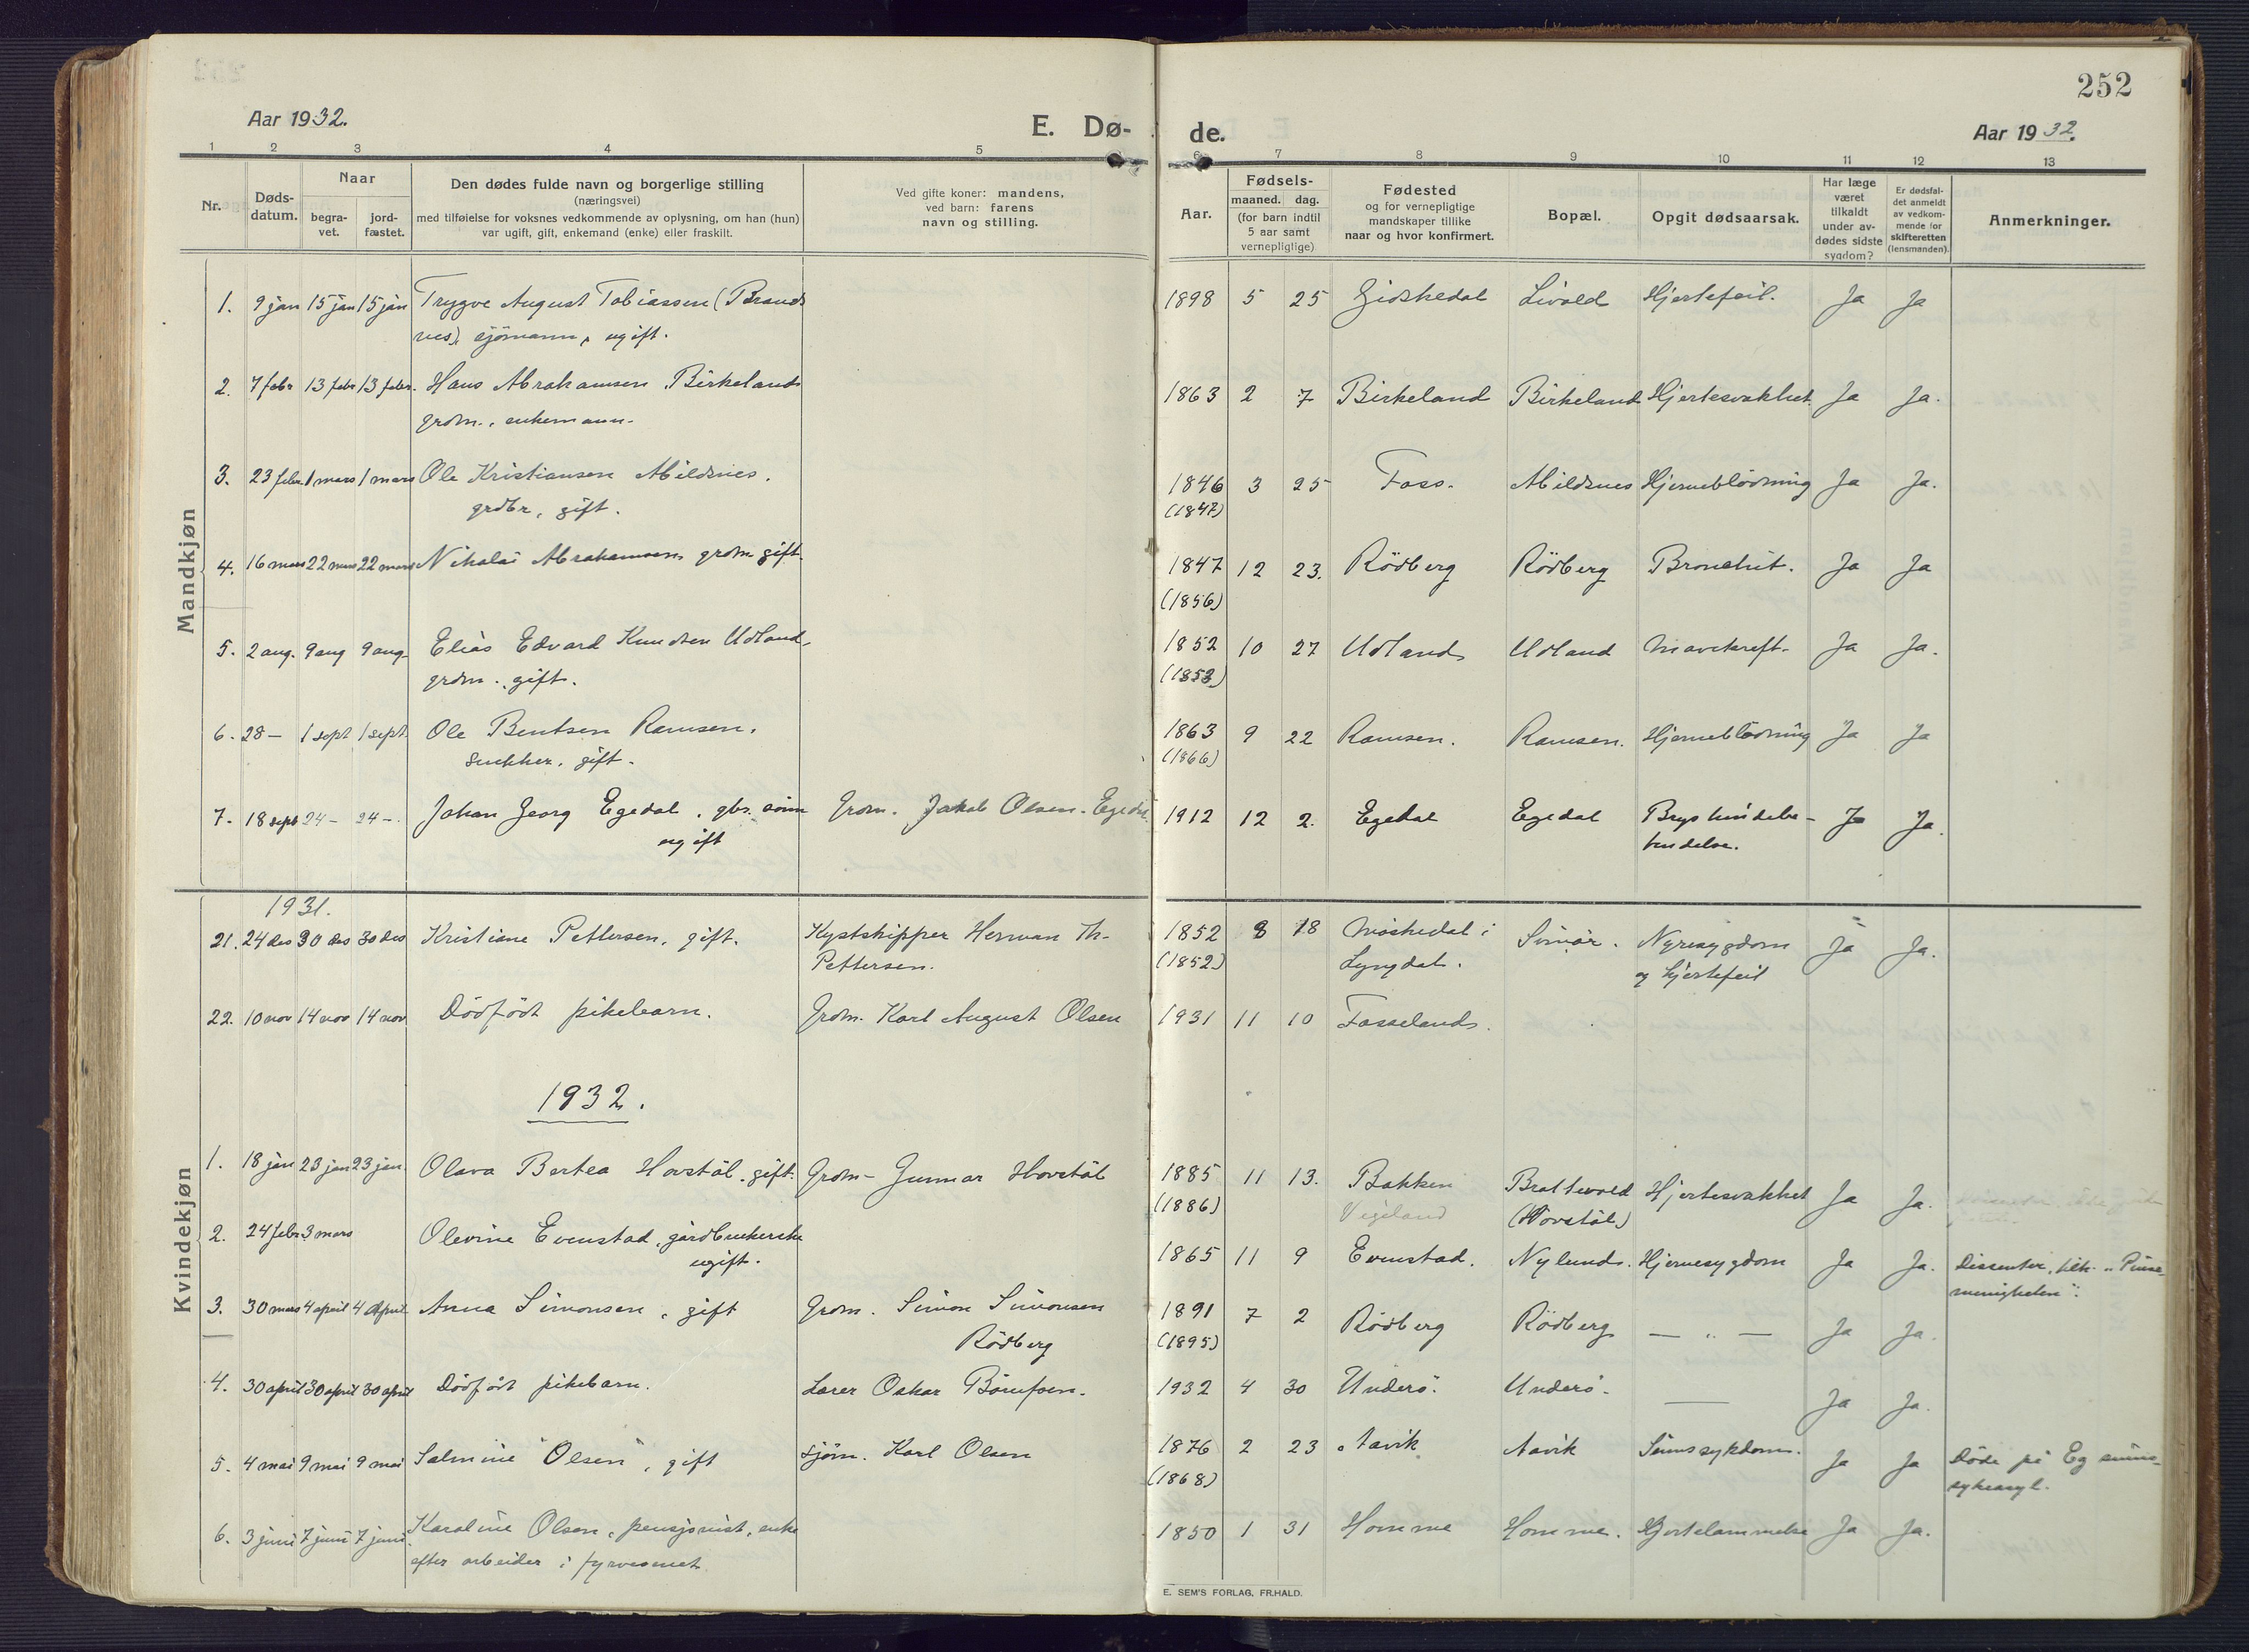 252
Aar 1932.
E. Dø-
de.
Aar 1932.
1 2 3 4 5 6 7 8 9 10 11 12 13
Nr.
Døds-
datum.
Naar
begra-
vet.
jord-
fæstet.
Den dødes fulde navn og borgerlige stilling
(næringsvei)
med tilføielse for voksnes vedkommende av oplysning, om han (hun)
var ugift, gift, enkemand (enke) eller fraskilt.
Ved gifte koner: mandens,
ved barn: farens
navn og stilling.
Aar.
Fødsels-
maaned. dag.
(for barn indtil
5 aar samt
vernepligtige)
Fødested
og for vernepligtige
mandskaper tillike
naar og hvor konfirmert.
Bopæl.
Opgit dødsaarsak.
Har læge
været
tilkaldt
under av-
dødes sidste
sygdom?
Er dødsfal-
det anmeldt
av vedkom-
mende for
skifteretten
(lensmanden).
Anmerkninger.
Mandkjøn
1. 9 jan 15 jan 15 jan Trygve August Tobiassen (Brands 1898 5 25 Gidskedal Livold Hjertefeil. Ja Ja
nes), sjömann, ugift.
2. 7 febr 13 febr 13 febr. Hans Abrahamsen Birkeland 1863 2 7 Birkeland Birkeland Hjertesvakhet Ja Ja.
grdm., enkemann.
3. 23 febr. 1 mars 1 mars Ole Kristiansen Abildsnes. 1846 3 25 Foss. Abildsnes Hjerneblödning Ja Ja.
grdbr, gift. (1847)
4. 16 mars 22 mars 22 mars Nikolai Abrahamsen grdm gift. 1847 12 23. Rödberg Rödberg Bronchit. Ja Ja
(1856)
5. 2 aug. 9 aug 9 aug. Elias Edvard Knudsen Udland, 1852 10 27 Udland Udland Mavekreft. Ja Ja.
grdm., gift. (1853)
6. 28 — 1 sept 1 sept. Ole Bentsen Ramsen, 1863 9 22 Ramsen. Ramsen. Hjerneblödning Ja Ja
snekker, gift. (1866)
7. 18 sept 24 — 24 —. Johan Georg Egedal, gbr. sönn Grdm. Jakob Olsen Egedal 1912 12 2. Egedal Egedal Bryshindebe- Ja Ja.
ugift tendelse.
Kvindekjøn
1931.
21. 24 des 30 des 30 des Kristiane Pettersen, gift. Kystskipper Herman Th. 1852 8 18 Møskedal i Svinör. Nyresygdom Ja Ja.
Pettersen. (1852) Lyngdal. og hjertefeil
22. 10 nov 14 nov 14 nov Dödfödt pikebarn. Grdm. Karl August Olsen 1931 11 10 Fosseland.
1932.
1. 18 jan 23 jan 23 jan. Olava Bertea Hovstöl, gift. Grdm. Gunnar Hovstöl 1885 11 13. Bakken Brattvold Hjertesvakhet Ja Ja.
(1886) Vegeland (Hovstöl)
2. 24 febr 3 mars Olevine Evenstad, gårdbrukerske 1865 11 9 Evenstad. Nylund. Hjernesygdom Ja Ja. Dissenter, tilh. „Pinse-
ugift. menigheten".
3. 30 mars 4 april 4 april Anna Simonsen, gift Grdm. Simon Simonsen 1891 7 2 Rödberg Rödberg — „ — Ja Ja.
Rödberg (1895)
4. 30 april 30 april 30 april Dödfödt pikebarn. Lærer Oskar 1932 4 30 Underö. Underö. — Ja Ja.
5. 4 mai 9 mai 9 mai Salmine Olsen, gift sjöm. Karl Olsen 1876 2 23 Aavik Aavik Sinnssykdom. Ja Ja Döde på Eg sinns-
(1868) sykeasyl.
6. 3 juni 7 juni 7 juni. Karoline Olsen, pensjonist, enke 1850 1 31 Homme Homme. Hjertelammelse Ja Ja.
efter arbeider i fyrvesenet.
E. SEM'S FORLAG, FR.HALD.